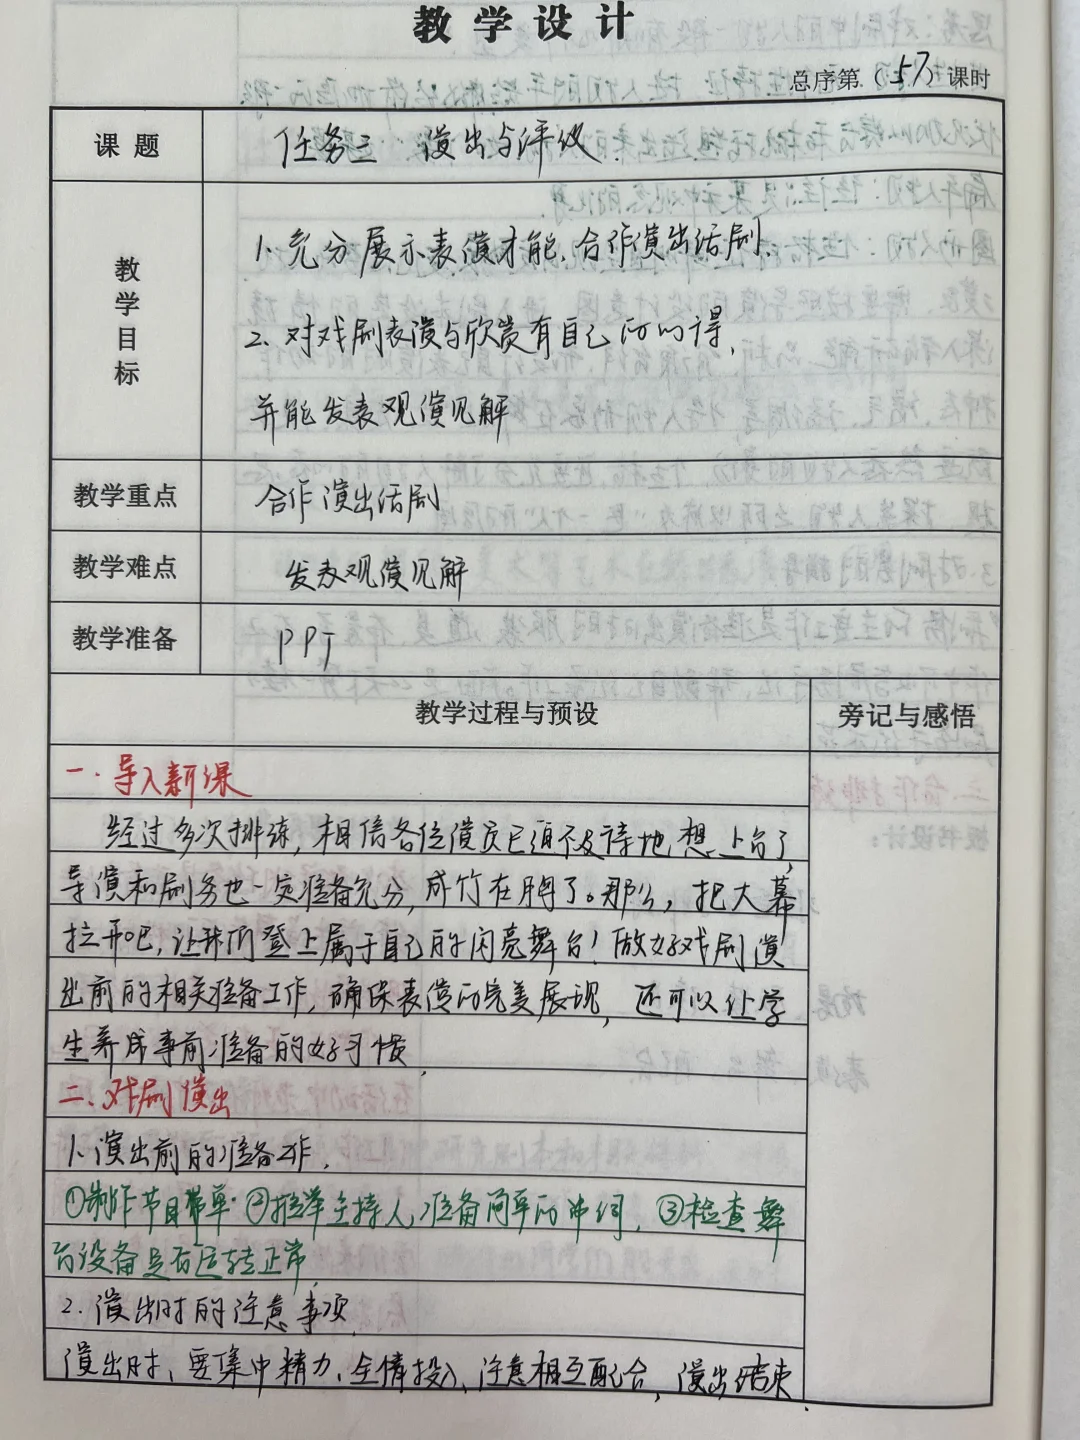 教学设计
总序第（57）课时
课题
任务三 演出与评议
教学目标
1. 充分展示表演才能,合作演出话剧.
2. 对戏剧表演与欣赏有自己的心得,
并能发表观演见解
教学重点
合作演出话剧
教学难点
发表观演见解
教学准备
PPT
教学过程与预设
旁记与感悟
一.导入新课
经过多次排练,相信各位演员已须不及待地想上台了,
导演和剧务也一定准备充分,成竹在胸了。那么,把大幕
拉开吧,让我们登上属于自己的闪亮舞台!做好戏剧演
出前的相关准备工作,确保表演的完美展现,还可以让学
生养成事前准备的好习惯.
二、戏剧演出
1.演出前的准备工作.
①制作节目带单.②推举主持人,准备简单的串词,③检查舞
台设备是否运转正常,
2.演出时的注意事项
演出时、要集中精力、全情投入、注意相互配合,演出结束